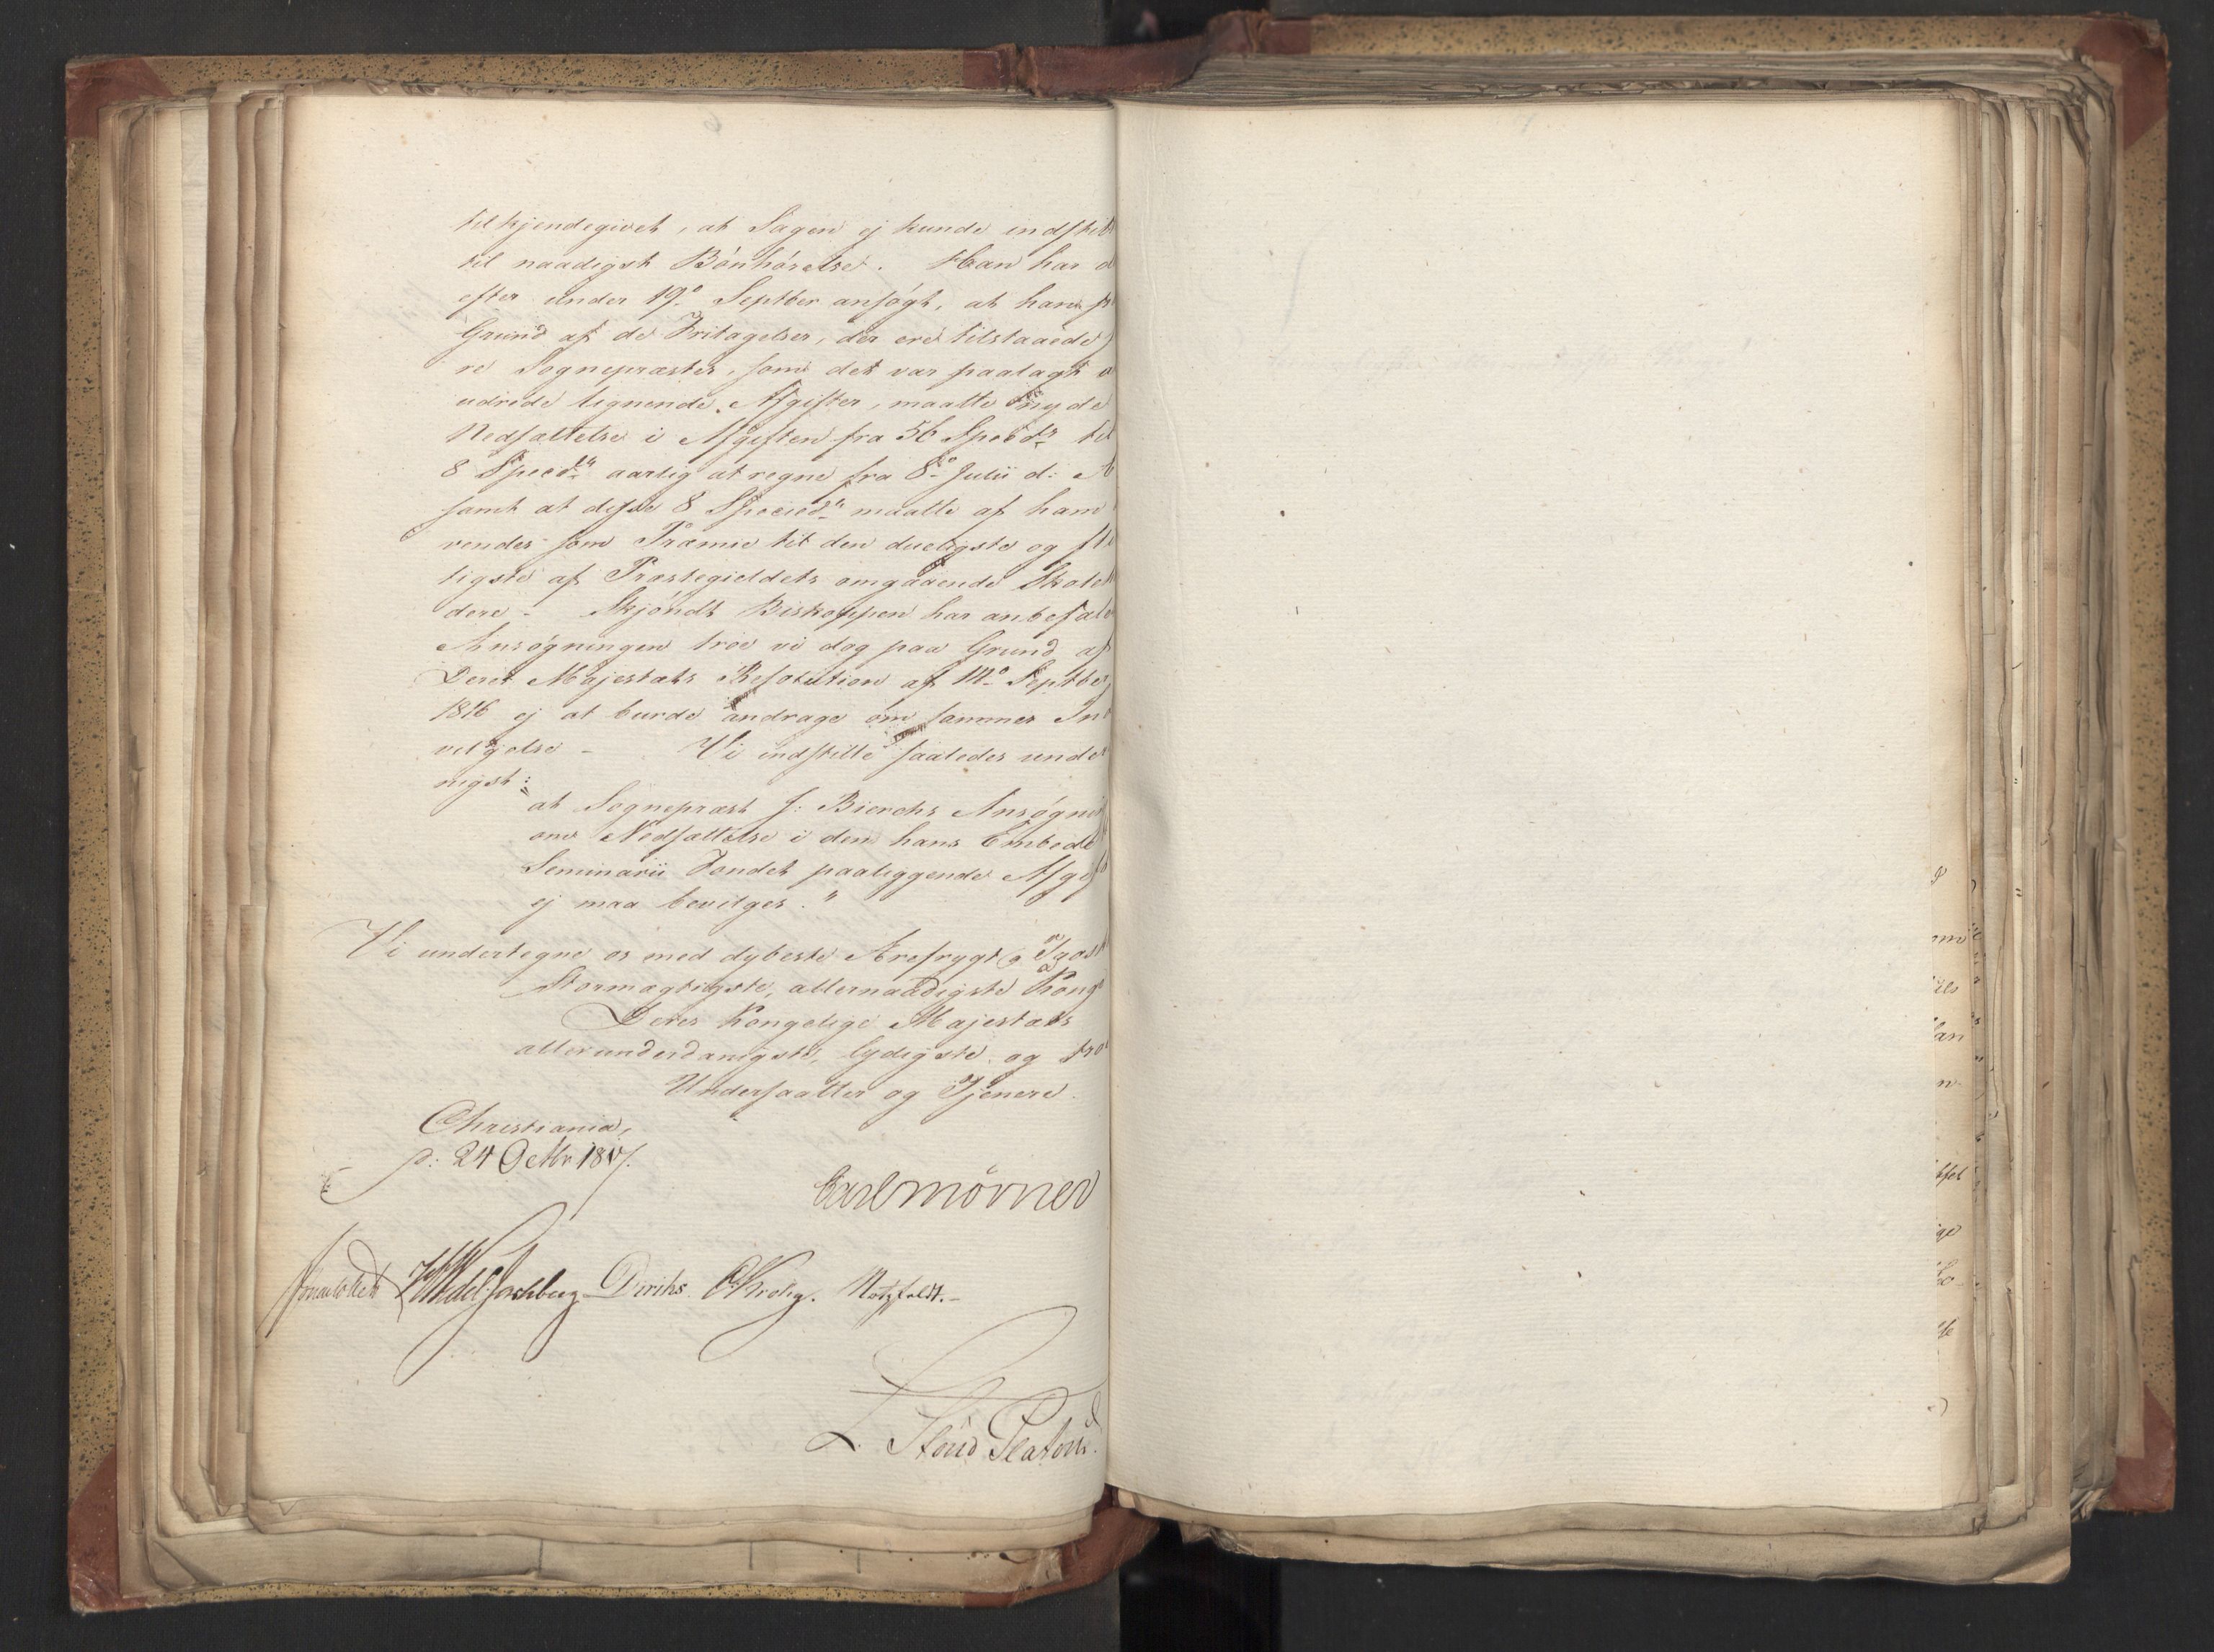 tilkjendegivet, at Sagen ej kunde indstil
til naadigst Bönhörelse. Han har d
efter under 19de Septbr ansögt, at han p
Grund af de Fritagelser, der ere tilstaaede
re Sognepræster, som det var paalagt a
udrede lignende Afgifter, maatte nyde
Nedsættelse i Afgiften fra 56 Specdr til
8 Specdr aarlig at regne fra 8de Julii d: A
samt at disse 8 Speciedr maatte af ham
vendes som Præmie til den dueligste og fli
tigste af Præstegieldets omgaaende Skolel
dere - Skjöndt Biskoppen har anbefale
Ansögningen troe vi dog paa Grund af
Deres Majestæts Resolution af 14de Septbr
1816 ej at burde andrage om sammes Ind
vilgelse - Vi indstille saaledes under
nigst:
at Sognepræst J: Bierchs Ansögni
om Nedsættelse i den hans Embede
Seminarii Fondet paaliggende Afgif
ej maa bevilges."
Vi undertegne os med dybeste Ærefrygt
Stormægtigste, allernaadigste Konge
Deres Kongelige Majestæts
allerunderdanigste, lydigste og tro
Undersaatter og Tjenere.
Christiania,
d: 24 Octbr 1817.
Carl Mörner
Sommerhielm Wedel Jarlsberg Diriks. CKrohg. Motzfeldt.-
L. Stoud Platou.